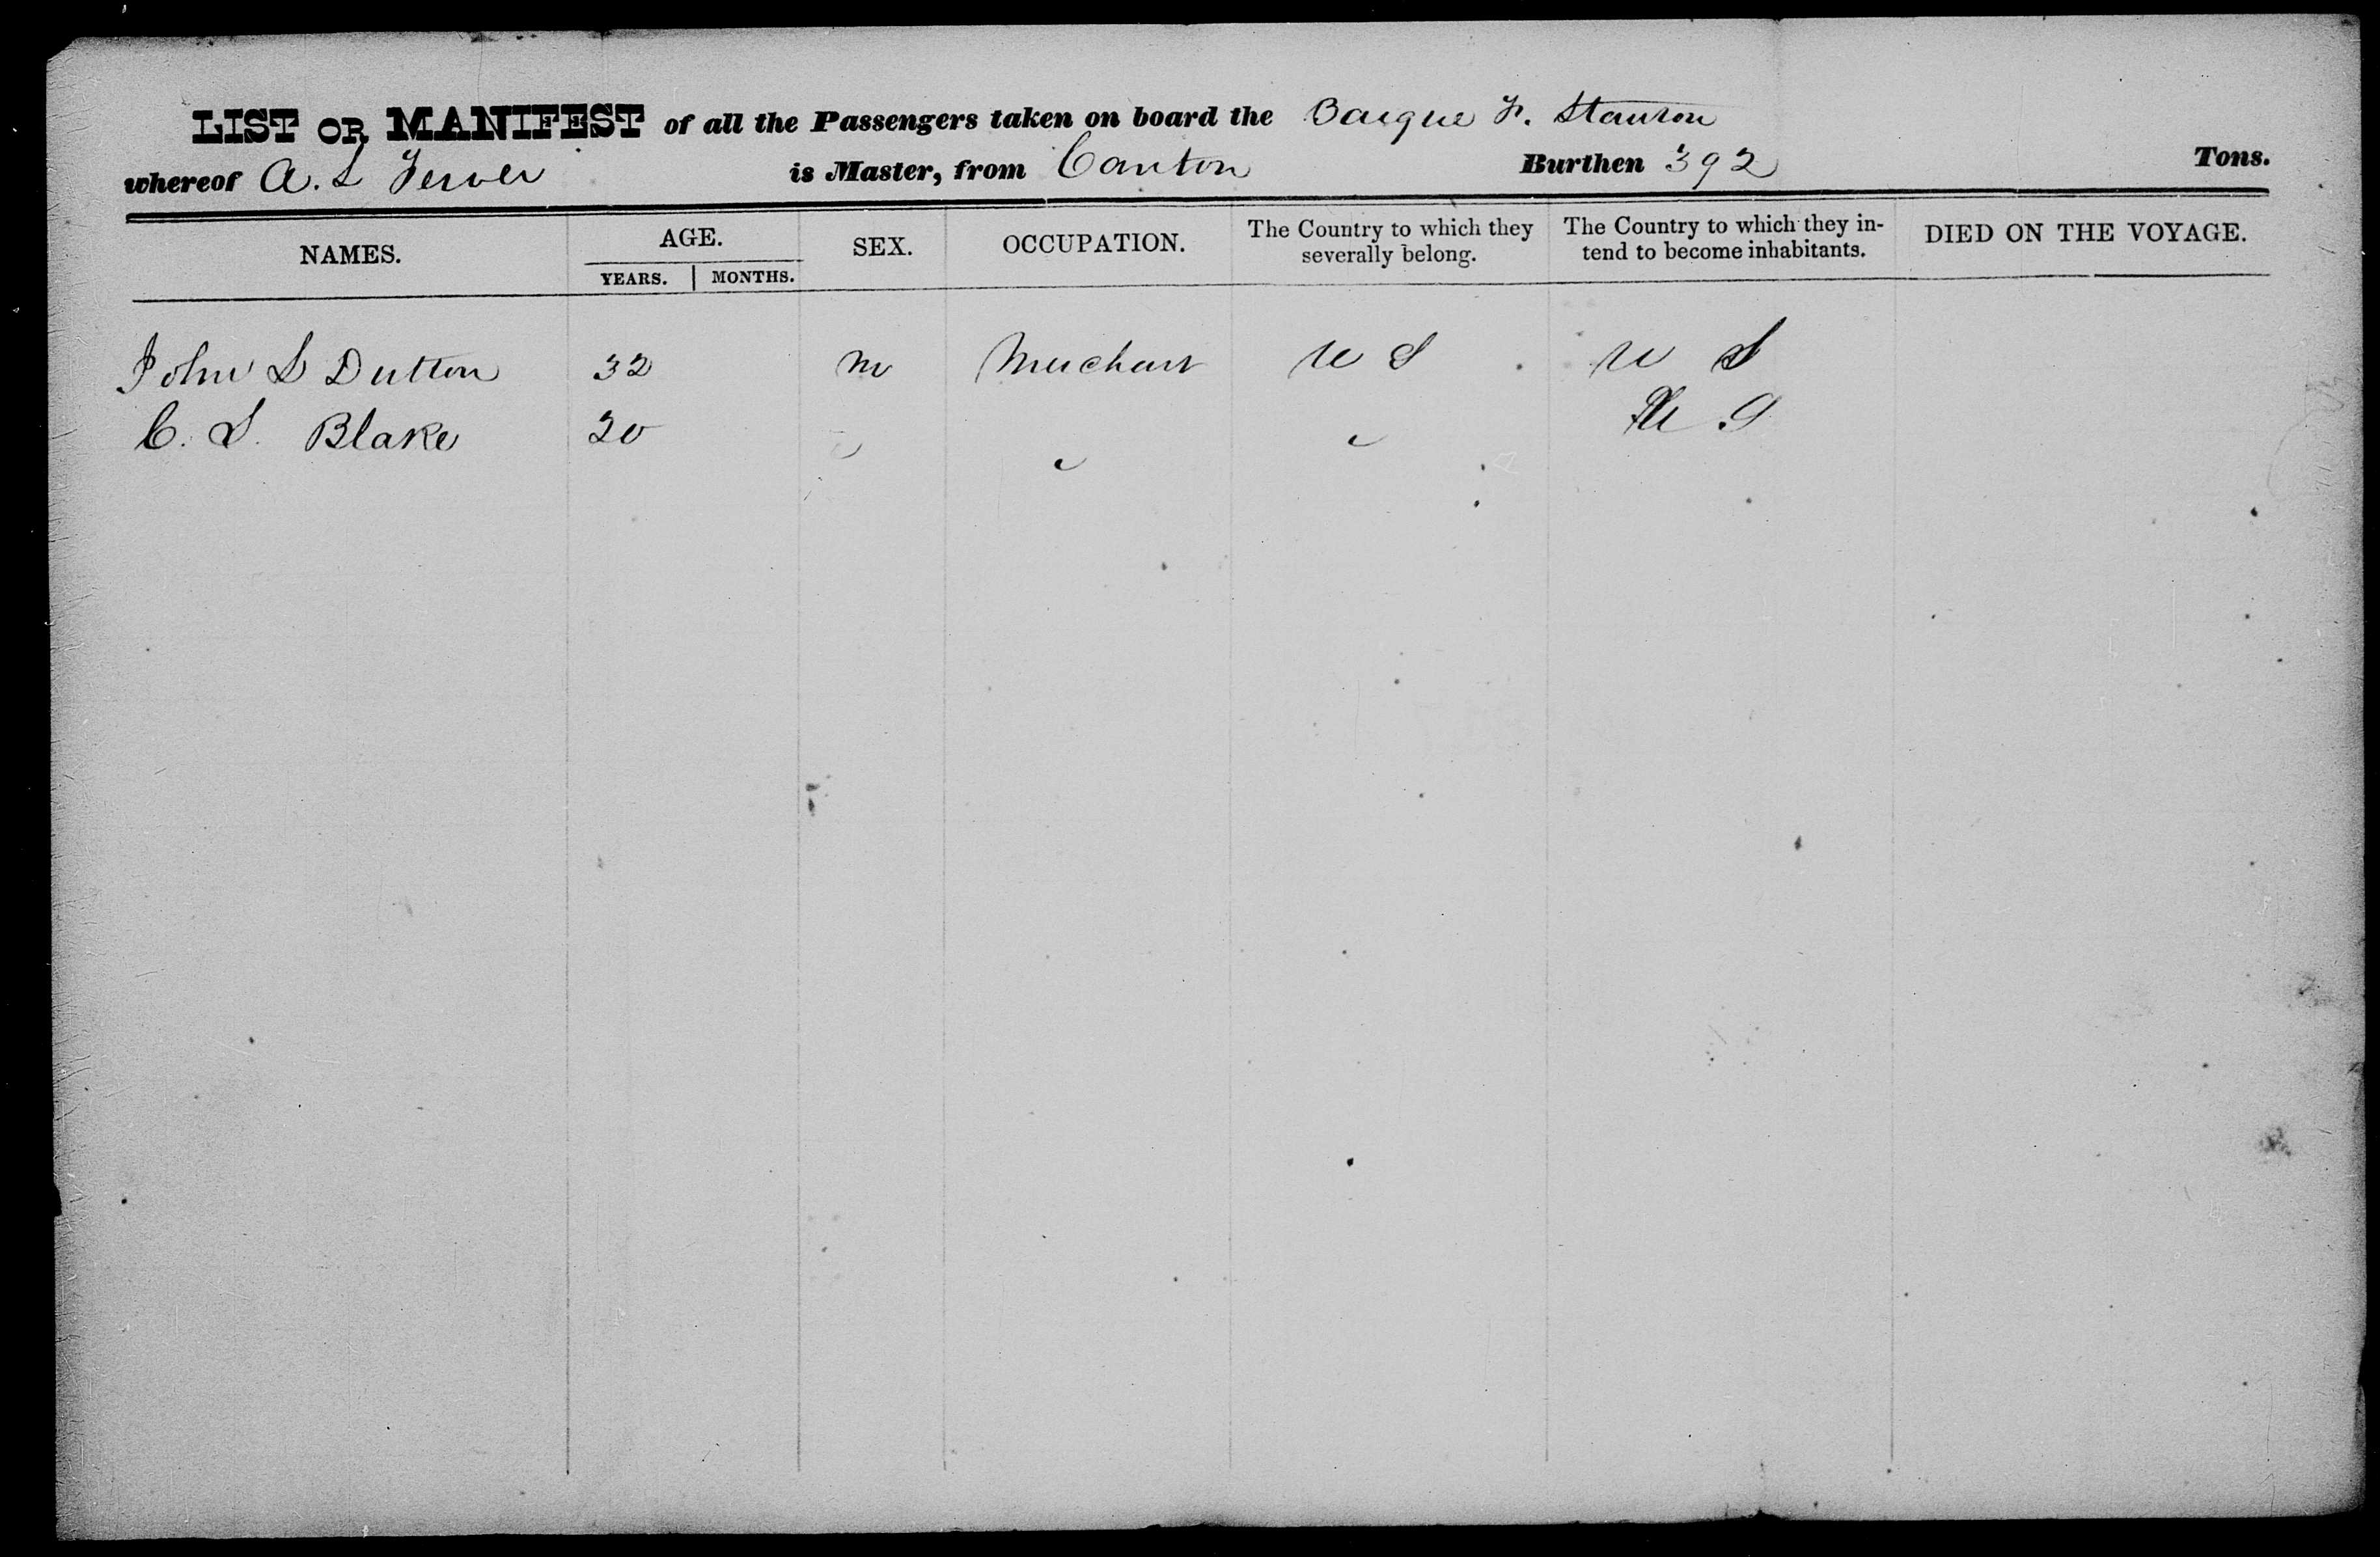 LIST OR MANIFEST of all the Passengers taken on board the Barque F. Stanton
whereof A. L is Master, from Canton Burthen 392 Tons.
NAMES. AGE. SEX. OCCUPATION. The Country to which they severally belong. The Country to which they in-tend to become inhabitants. DIED ON THE VOYAGE.
YEARS. MONTHS.
John S Dutton 32 m Merchant U S U S
C. S. Blake U S